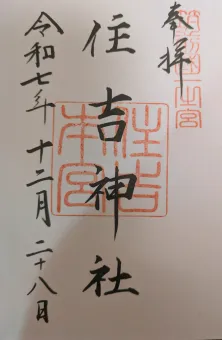 奉拝
筑前國一之宮
住吉神社
住吉本宮
令和七年十二月二十八日